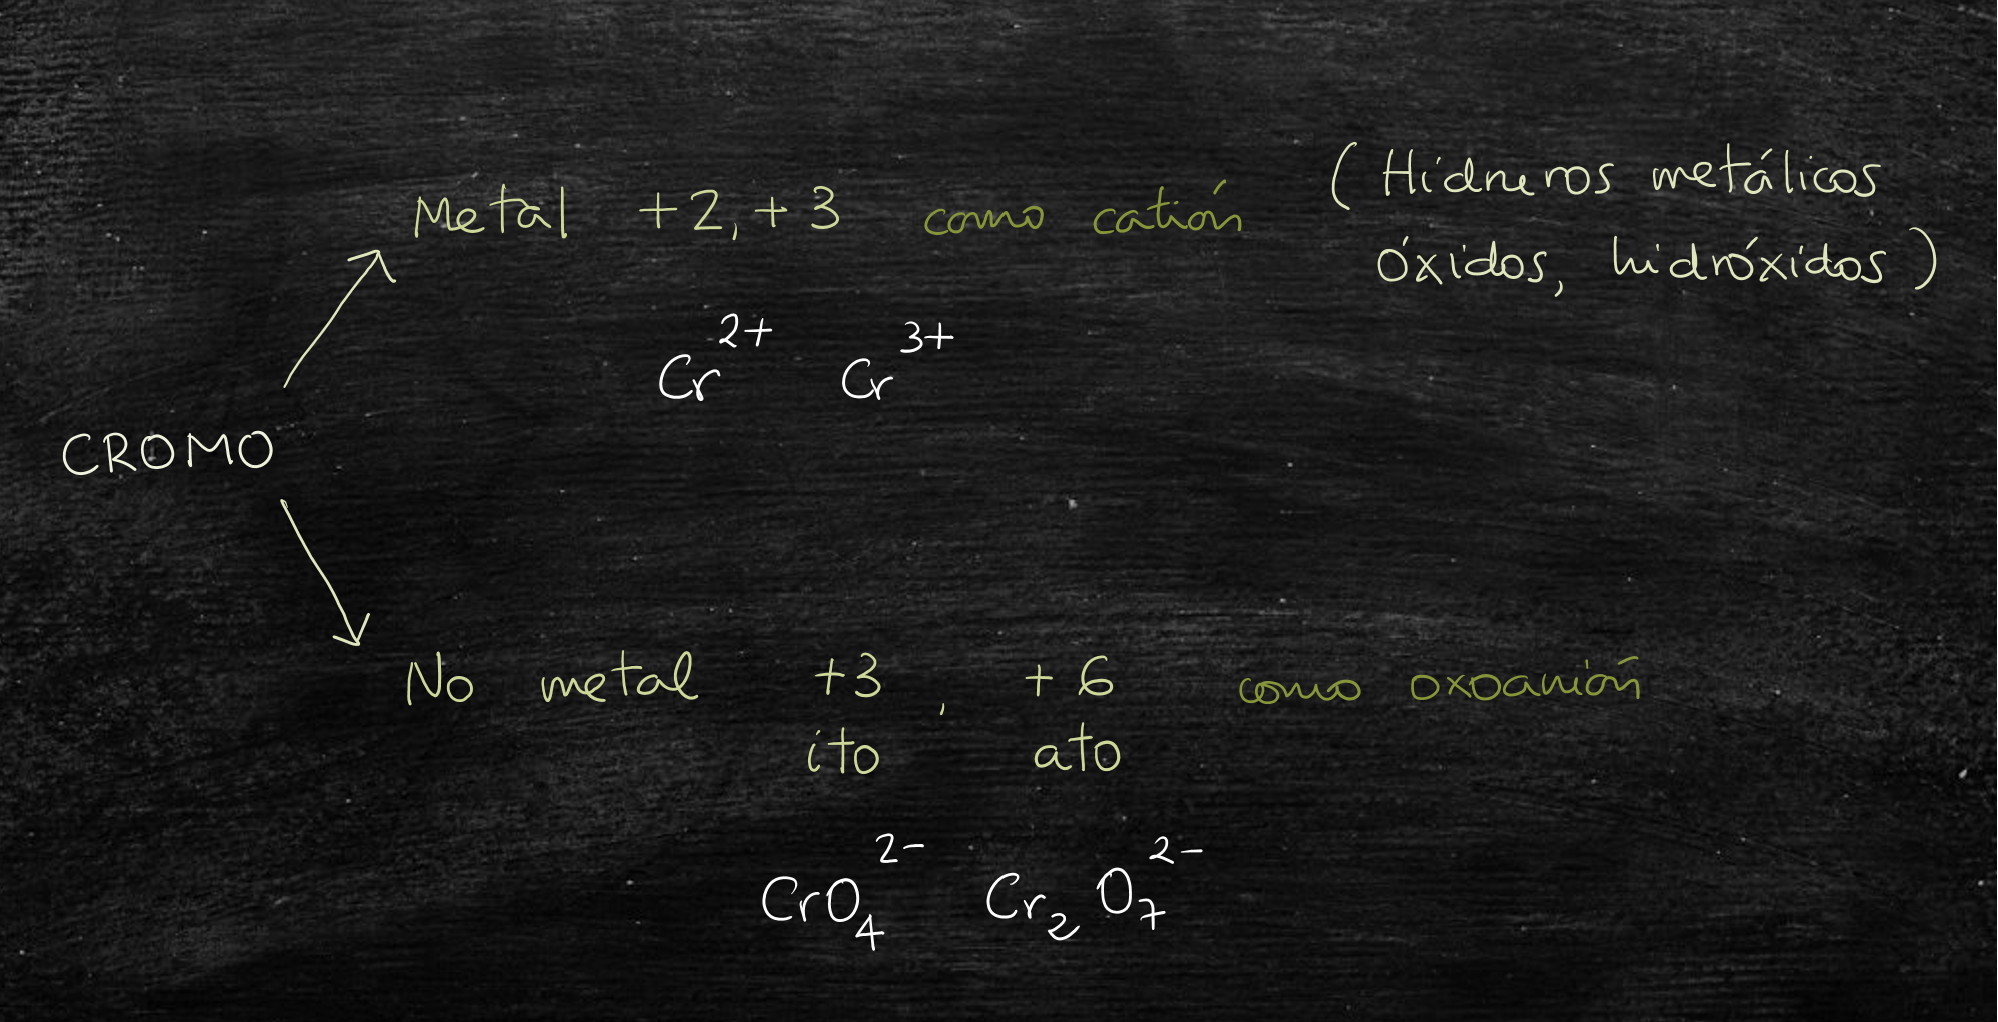 Metal +2, +3 como catión (Hidruros metálicos
óxidos, hidróxidos)
Cr²⁺ Cr³⁺
CROMO
No metal +3 , +6 como oxoanión
ito ato
CrO₄²⁻ Cr₂O₇²⁻